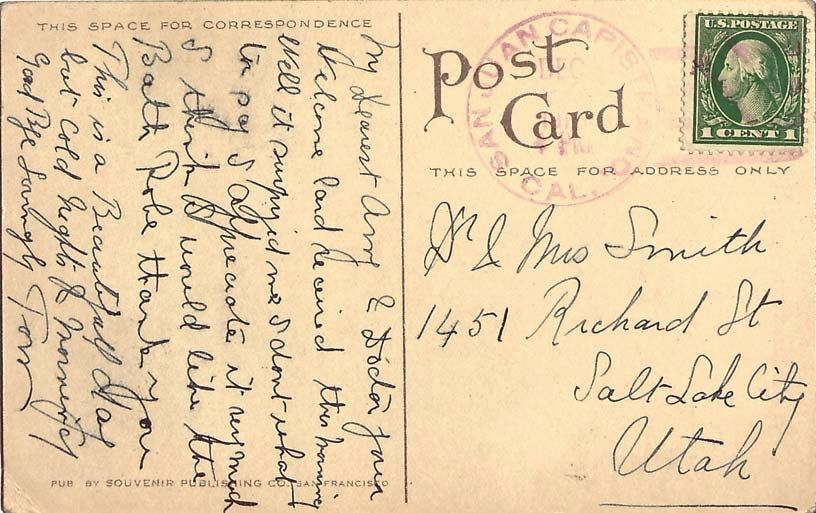 THIS SPACE FOR CORRESPONDENCE
My Dearest Amy & Doctor your
Welcome Card received this morning
Well it surprised me I dont what
to say I appreciate it very much
I think I would like the
Bath Robe thank you
This is a Beautifull day
but cold nights & mornings
Good Bye Lovingly Tom
PUB BY SOUVENIR PUBLISHING CO. SAN FRANCISCO
Post
Card
SAN JUAN CAPIST
DEC
CAL.
U.S. POSTAGE
1 CENT 1
THIS SPACE FOR ADDRESS ONLY
Dr & Mrs Smith
1451 Richard St
Salt Lake City
Utah